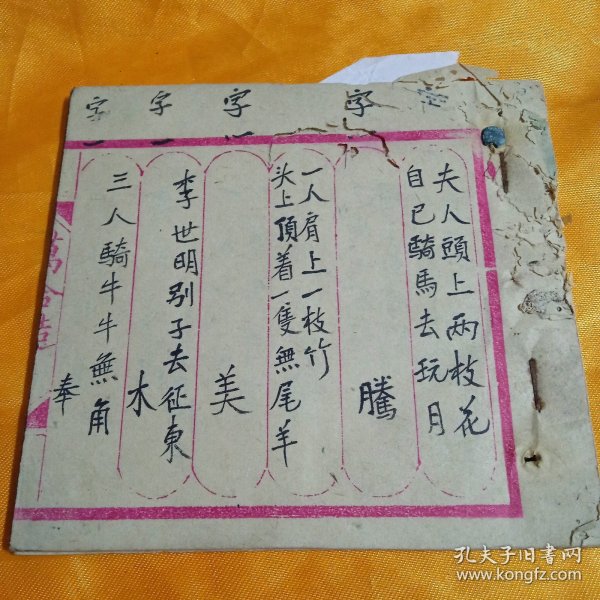 字
夫人頭上两枝花
自已騎馬去玩月
騰
字
一人肩上一枝竹
头上頂着一隻無尾羊
美
字一
李世明别子去征東
木
字一
三人騎牛牛無角
奉
字一
萬合
孔夫子旧书网
www.kongfz.com